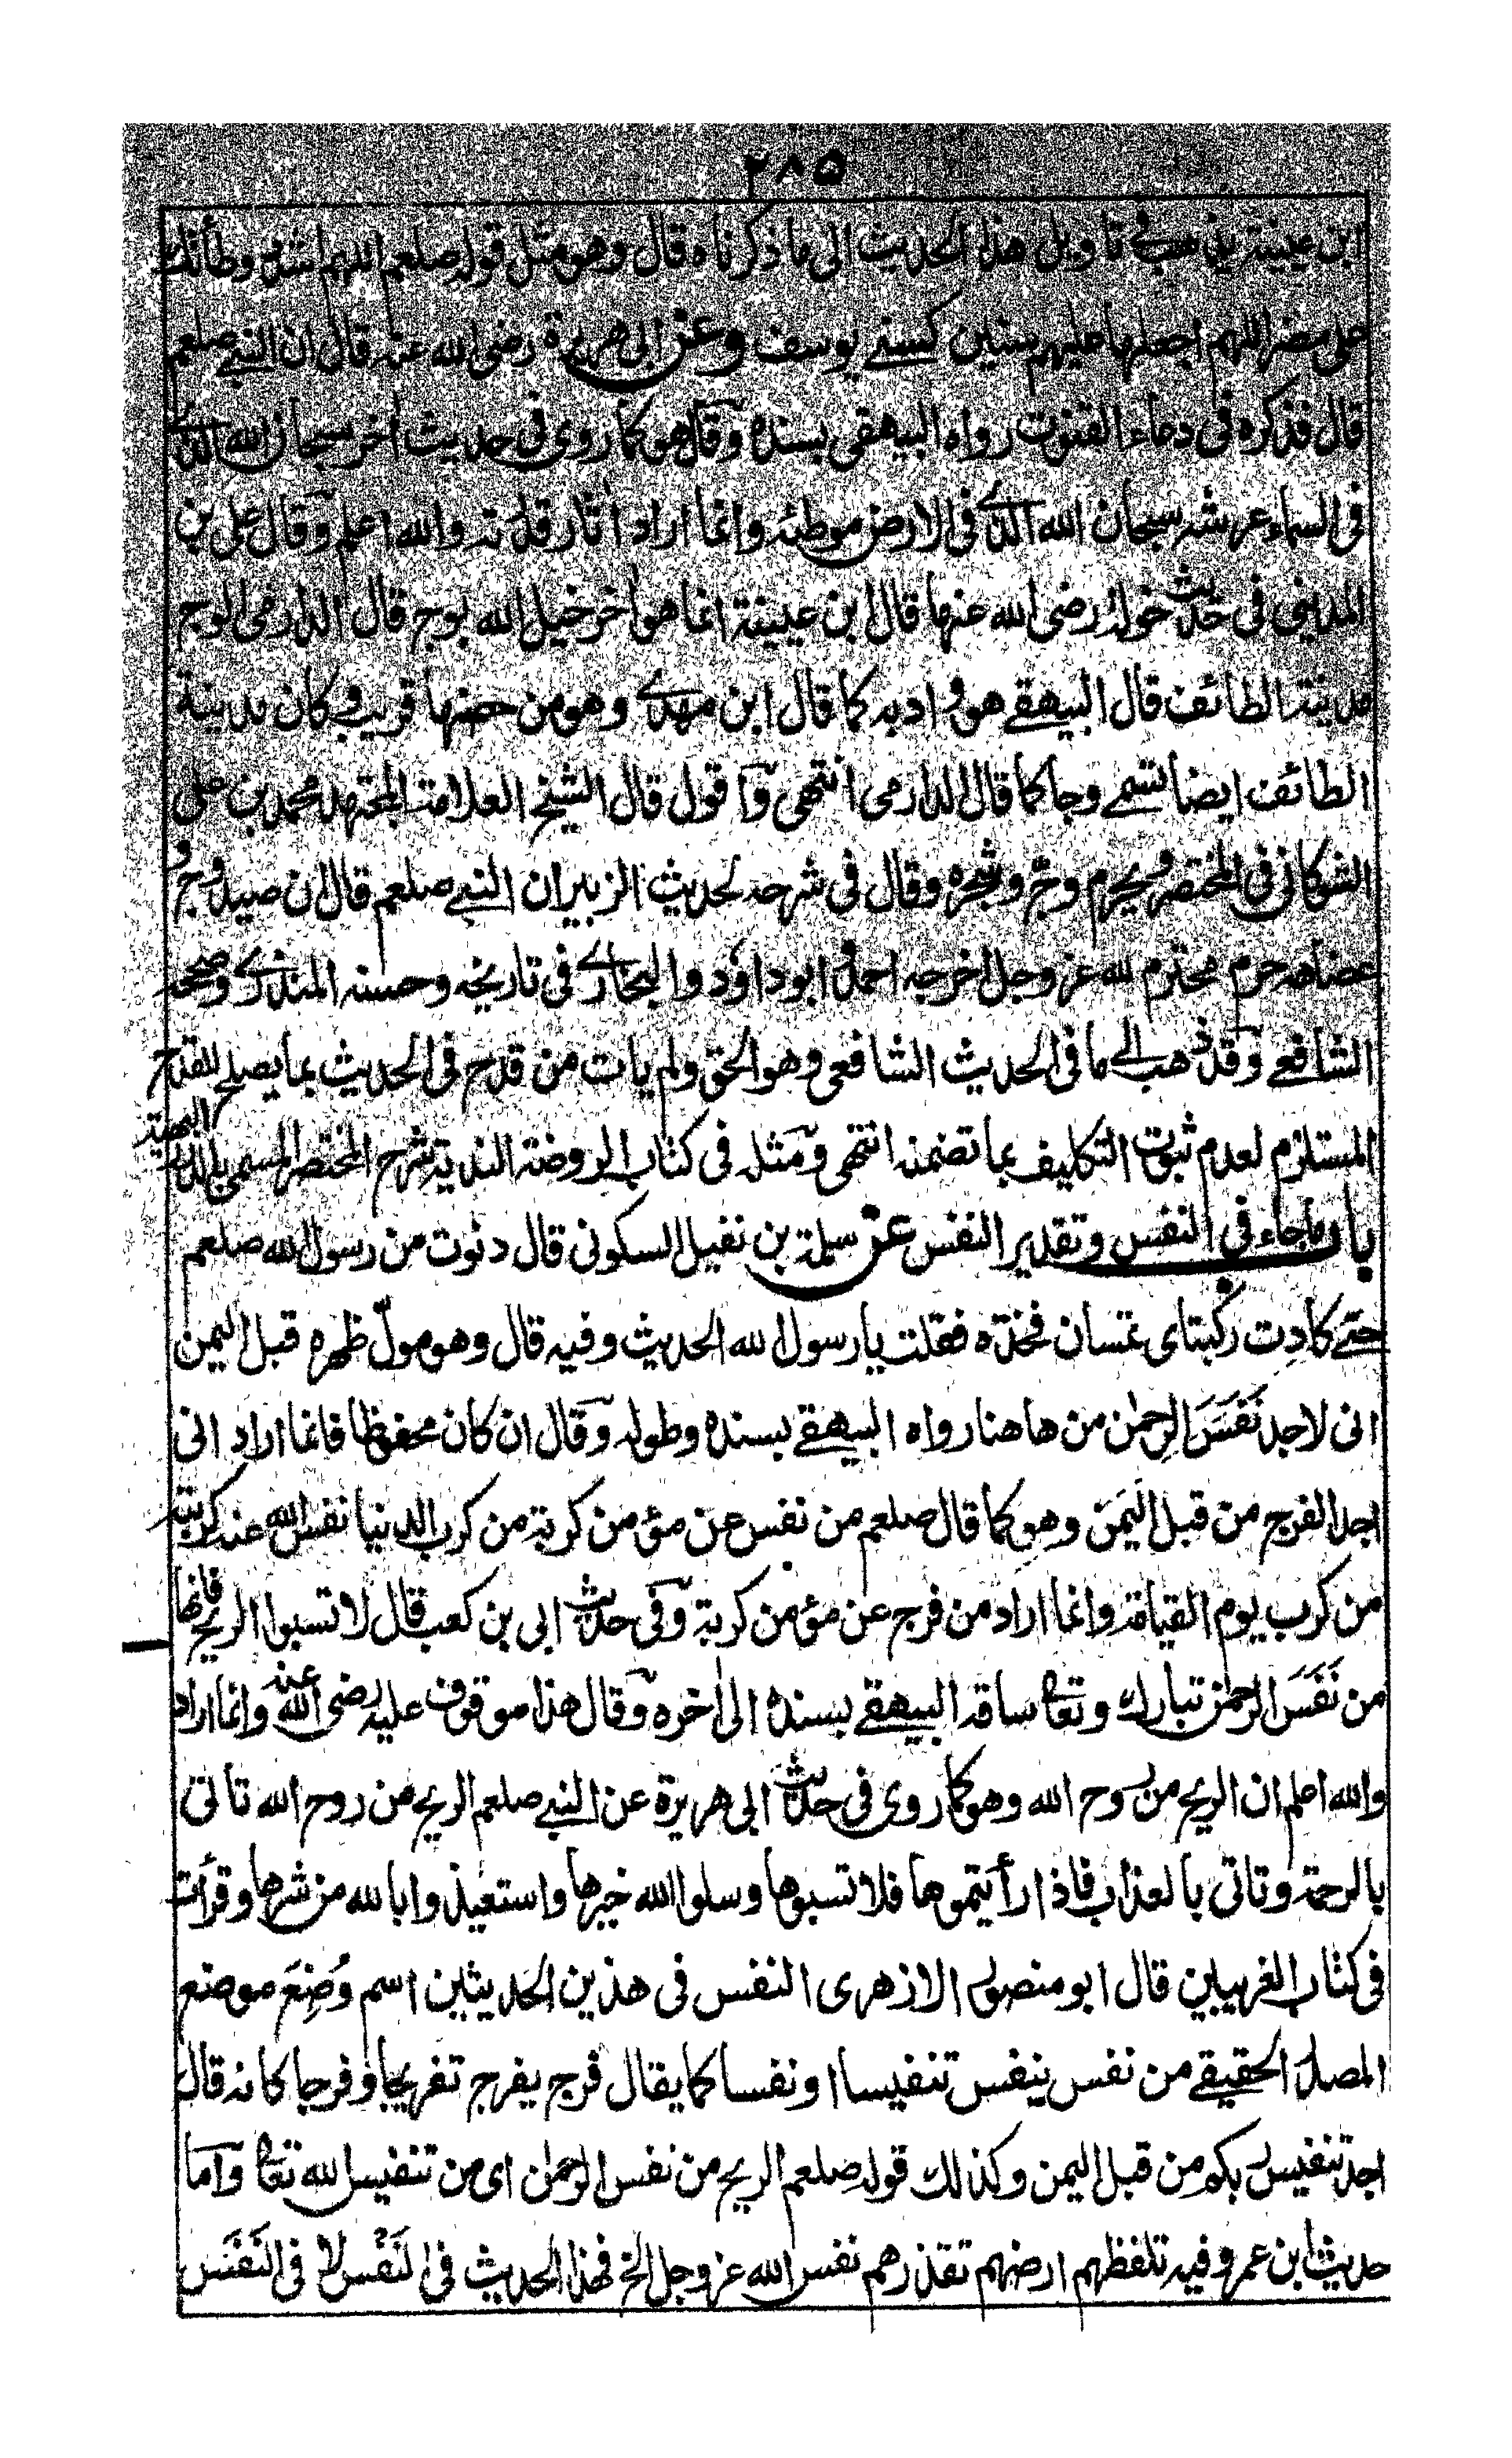 ٢٨٥
ابن عيينة يذهب في تاويل هذا الحديث الى ما ذكرناه قال وهو مثل قوله صلعم اللهم اشدد وطأتك
على مضر اللهم اجعلها عليهم سنين كسنے يوسف وعن ابى هريرة رضى الله عنه قال ان النبے صلعم
قال فذكره فى دعاء القنوت رواه البيهقى بسنده وقال هو كما روى فى حديث اخر سبحان الله الذى
فى السماء عرشه سبحان الله الذى فى الارض موطئه وانما اراد اثار قدرته والله اعلم وقال على بن
المدينى فى حديث خولة رضى الله عنها قال ابن عيينة انما هو اخر خيل الله بوج قال الدارمى لوج
مدينة الطائف قال البيهقے هو واد به كما قال ابن مهدے وهو من حضنها قريب وكان مدينة
الطائف ايضا تسمے وجا كما قال الدارمى انتهى وآ قول قال الشيخ العلامة المجتهد محمد بن على
الشوكانى فى المختصر ويحرم وجّ وشجره وقال فى شرحه لحديث الزبير ان النبے صلعم قال ان صيد وج و
عضاهه حرم محترم لله عز وجل اخرجه احمد وابو داؤد والبخارے فى تاريخه وحسنه المنذرے وصححه
الشافعے وقد ذهب الے ما فى الحديث الشافعى وهو الحق ولم يات من قدح فى الحديث بما يصلح للقدح
المستلزم لعدم ثبوت التكليف بما تضمنه انتهى ومثله فى كتاب الروضة الندية شرح المختصر المسمى بالدرر البهية
باب ما جاء فى النفس وتقدير النفس عن سلمة بن نفيل السكونى قال دنوت من رسول الله صلعم
حتے كادت ركبتاى تمسان فخذه فقلت يا رسول الله الحديث وفيه قال وهو مولّ ظهره قبل اليمن
انى لاجد نَفَسَ الرحمن من هاهنا رواه البيهقے بسنده وطوله وقال ان كان محفوظا فانما اراد انى
اجد الفرج من قبل اليَمَن وهو كما قال صلعم من نفس عن مؤمن كربة من كرب الدنيا نفس الله عنه كربة
من كرب يوم القيامة وانما اراد من فرج عن مؤمن كربة وفى حديث ابى بن كعب قال لا تسبوا الريح فانها
من نَفَسَ الرحمن تبارك وتعالى ساقه البيهقے بسنده الى اخره وقال هذا موقوف عليه رضى الله عنه وانما اراد
والله اعلم ان الريح من روح الله وهو كما روى فى حديث ابى هريرة عن النبے صلعم الريح من روح الله تاتى
بالرحمة وتاتى بالعذاب فاذا رأيتموها فلا تسبوها وسلوا الله خيرها واستعيذوا بالله من شرها وقرأت
فى كتاب الغريبين قال ابو منصور الازهرى النفس فى هذين الحديثين اسم وُضِعَ موضع
المصدر الحقيقے من نفس ينفس تنفيسا ونفسا كما يقال فرج يفرج تفريجا وفرجا كانه قال
اجد تنفيس ربكم من قبل اليمن وكذلك قوله صلعم الريح من نفس الرحمن اى من تنفيس الله تعالى وآما
حديث ابن عمرو فيه تلفظهم ارضهم تقذرهم نفس الله عز وجل الخ فهذا الحديث فى النَفْس لا فى النَفَس